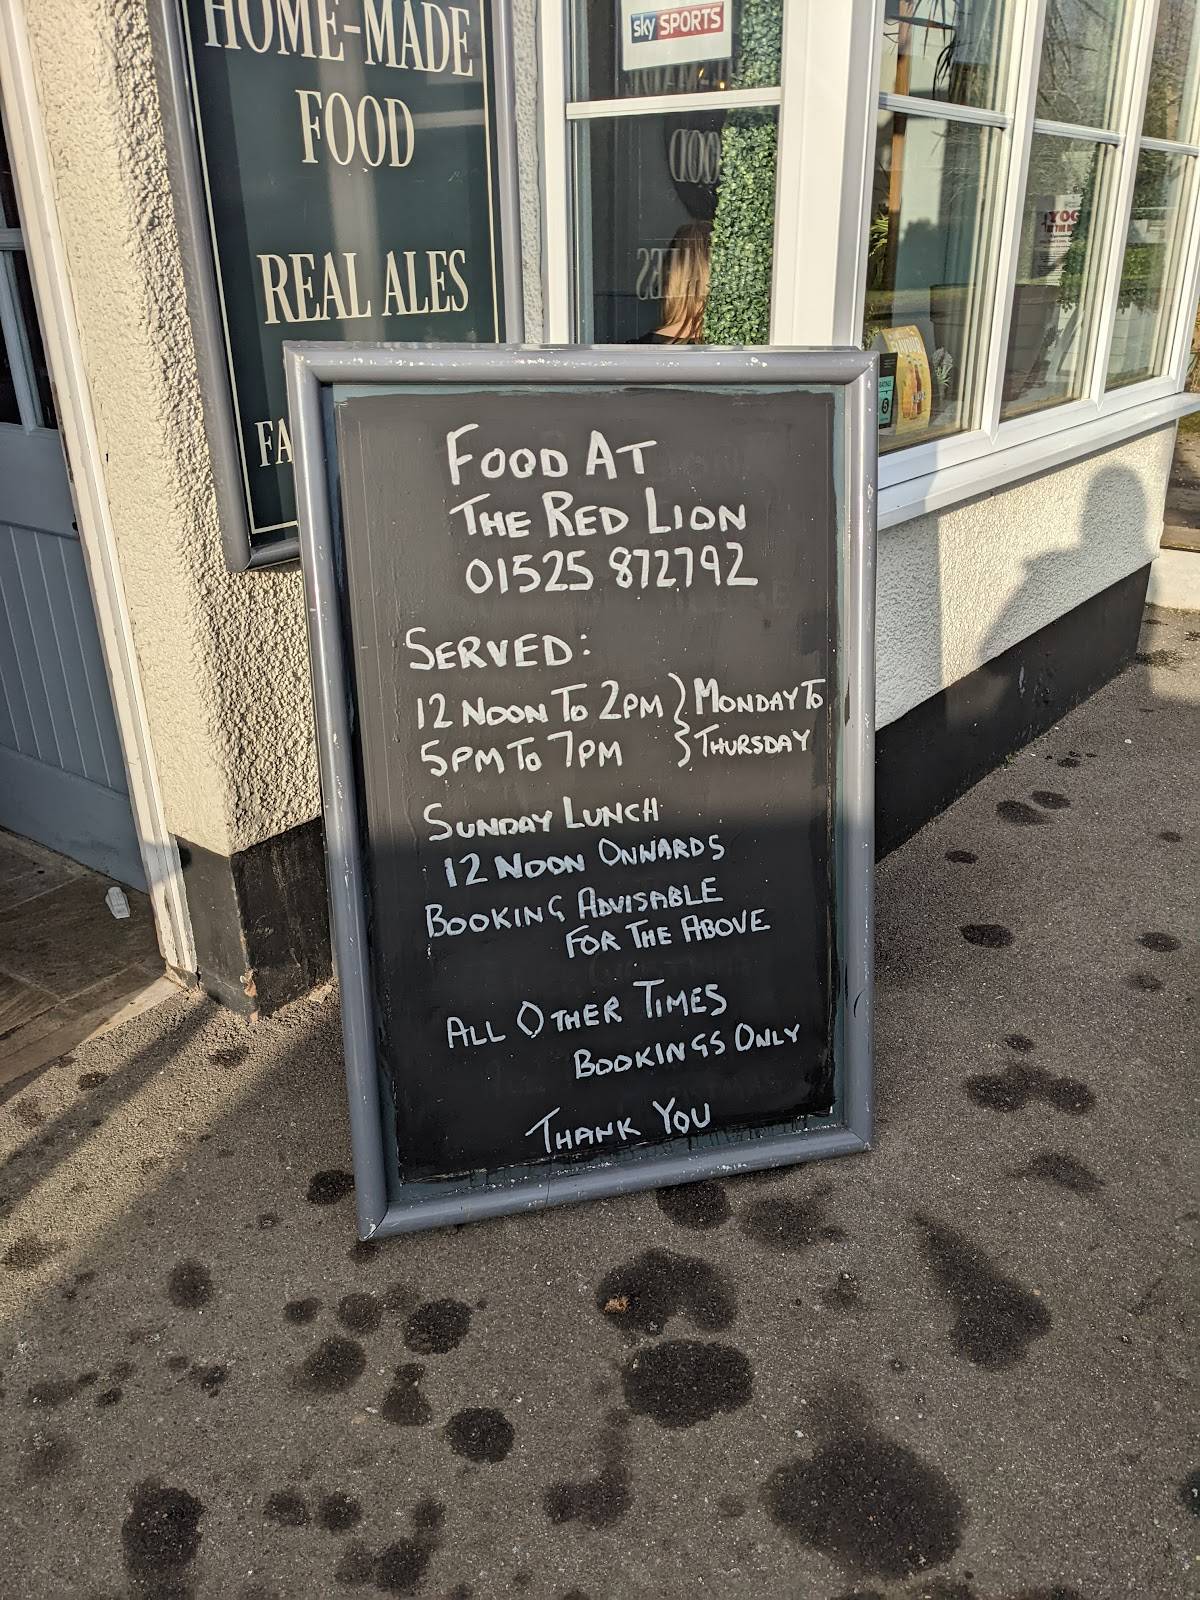 HOME-MADE
FOOD
REAL ALES
FA
sky SPORTS
FOOD AT
THE RED LION
01525 872792
SERVED:
12 NOON TO 2PM } MONDAY TO
5PM TO 7PM } THURSDAY
SUNDAY LUNCH
12 NOON ONWARDS
BOOKING ADVISABLE
FOR THE ABOVE
ALL OTHER TIMES
BOOKINGS ONLY
THANK YOU